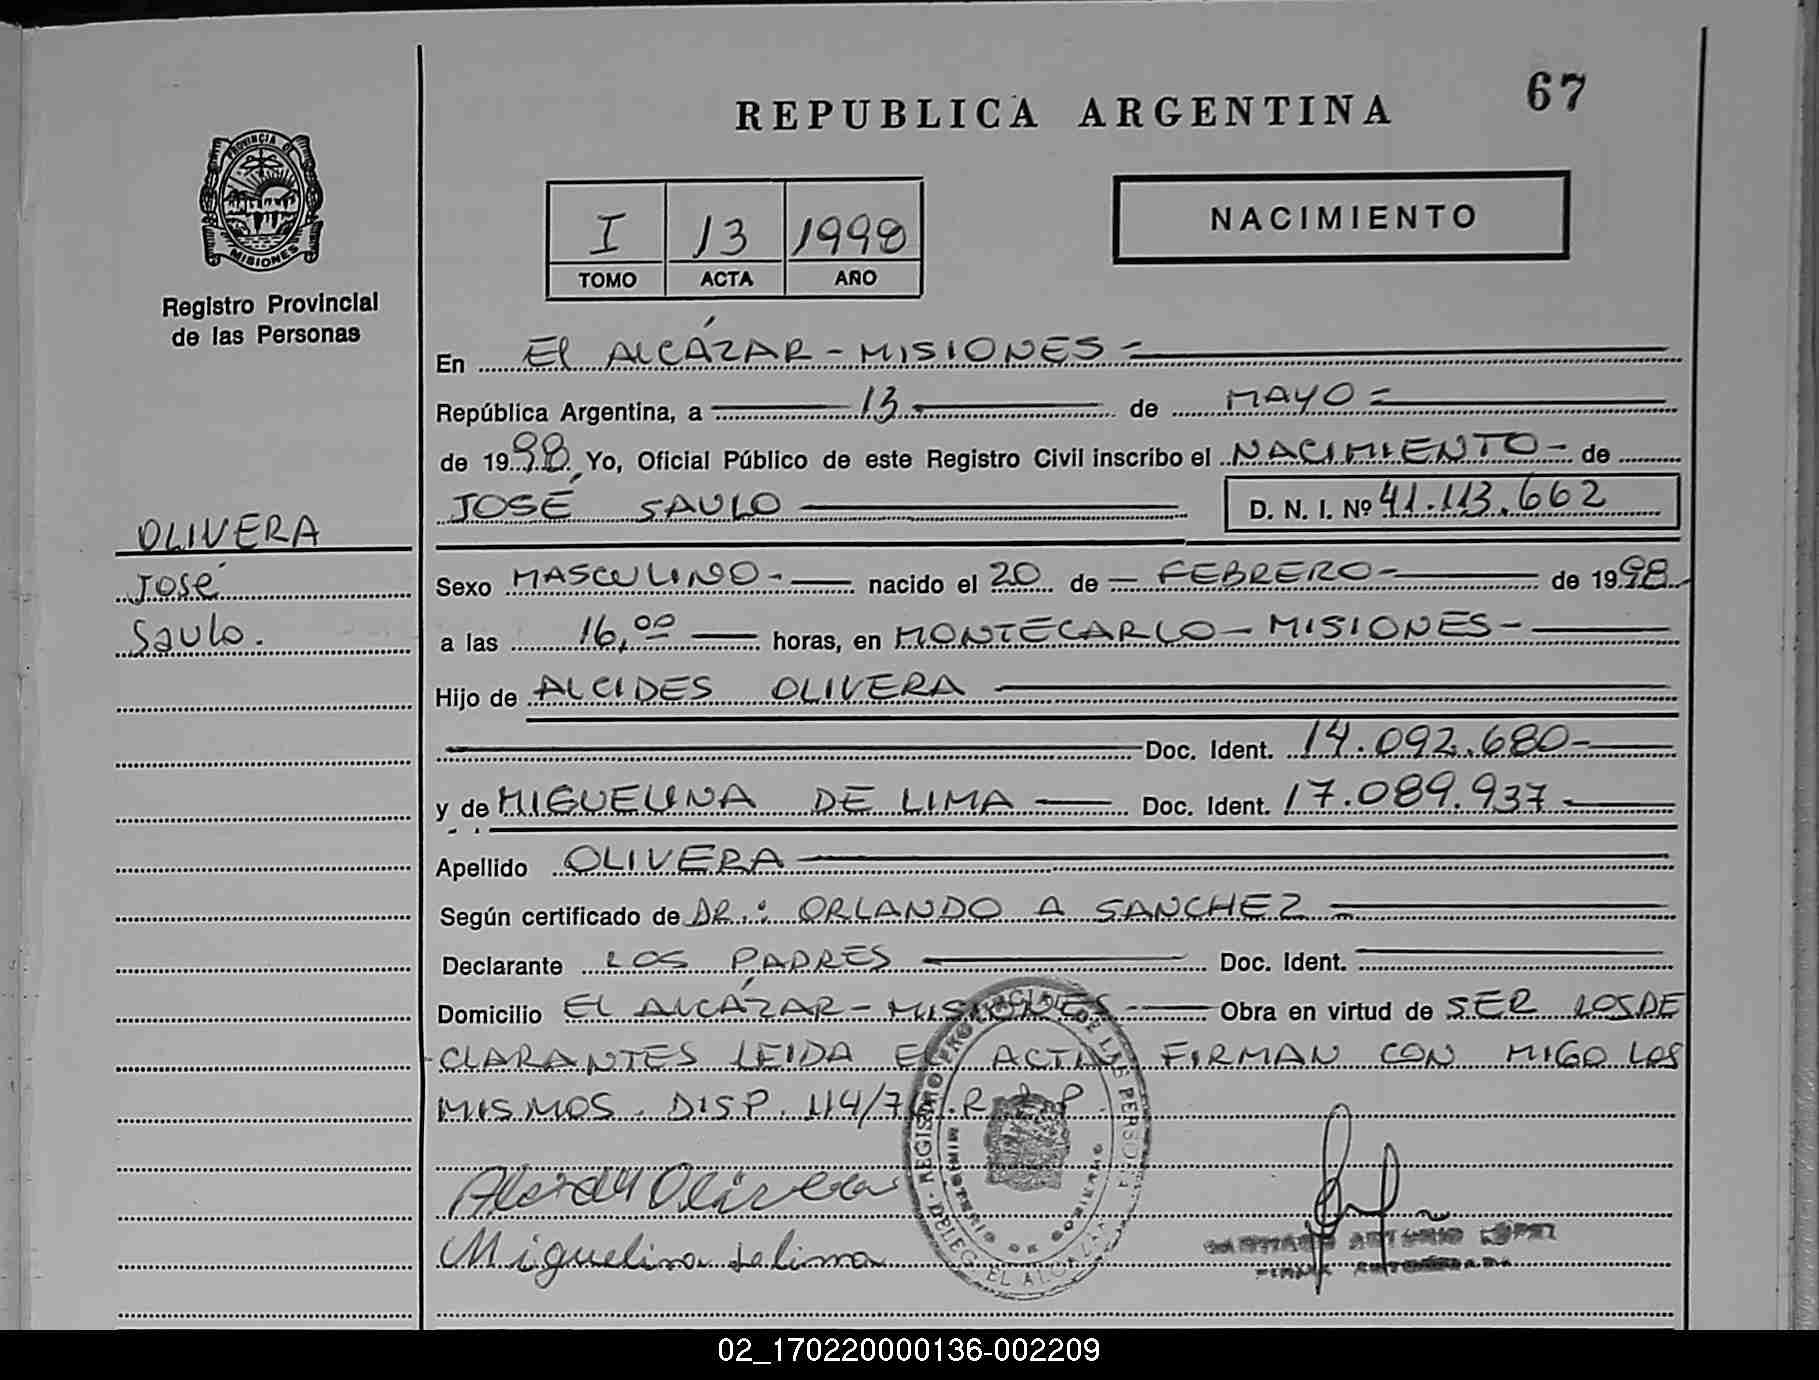 67
REPUBLICA ARGENTINA
PROVINCIA DE
MISIONES
Registro Provincial
de las Personas
I 13 1998
TOMO ACTA AÑO
NACIMIENTO
En El ALCÁZAR - MISIONES -
República Argentina, a 13 de MAYO
de 1998 Yo, Oficial Público de este Registro Civil inscribo el NACIMIENTO - de
JOSÉ SAULO D. N. I. Nº 41.113.662
OLIVERA
José
Saulo.
Sexo MASCULINO - nacido el 20 de FEBRERO - de 1998
a las 16,00 horas, en MONTECARLO - MISIONES -
Hijo de ALCIDES OLIVERA
Doc. Ident. 14.092.680 -
y de MIGUELINA DE LIMA Doc. Ident. 17.089.937
Apellido OLIVERA
Según certificado de DR.: ORLANDO A SANCHEZ
Declarante LOS PADRES Doc. Ident.
Domicilio EL ALCÁZAR - MISIONES - Obra en virtud de SER LOS DE
CLARANTES LEIDA EL ACTA FIRMAN CON MIGO LOS
MISMOS. DISP. 114/7 .R P.
REGISTRO PROVINCIAL DE LAS PERSONAS
MINISTERIO DE GOBIERNO
DELEG. EL ALCAZAR
Olivera
Miguelina de lima
ANTONIO LOPEZ
FIRMA AUTORIZADA
02_170220000136-002209